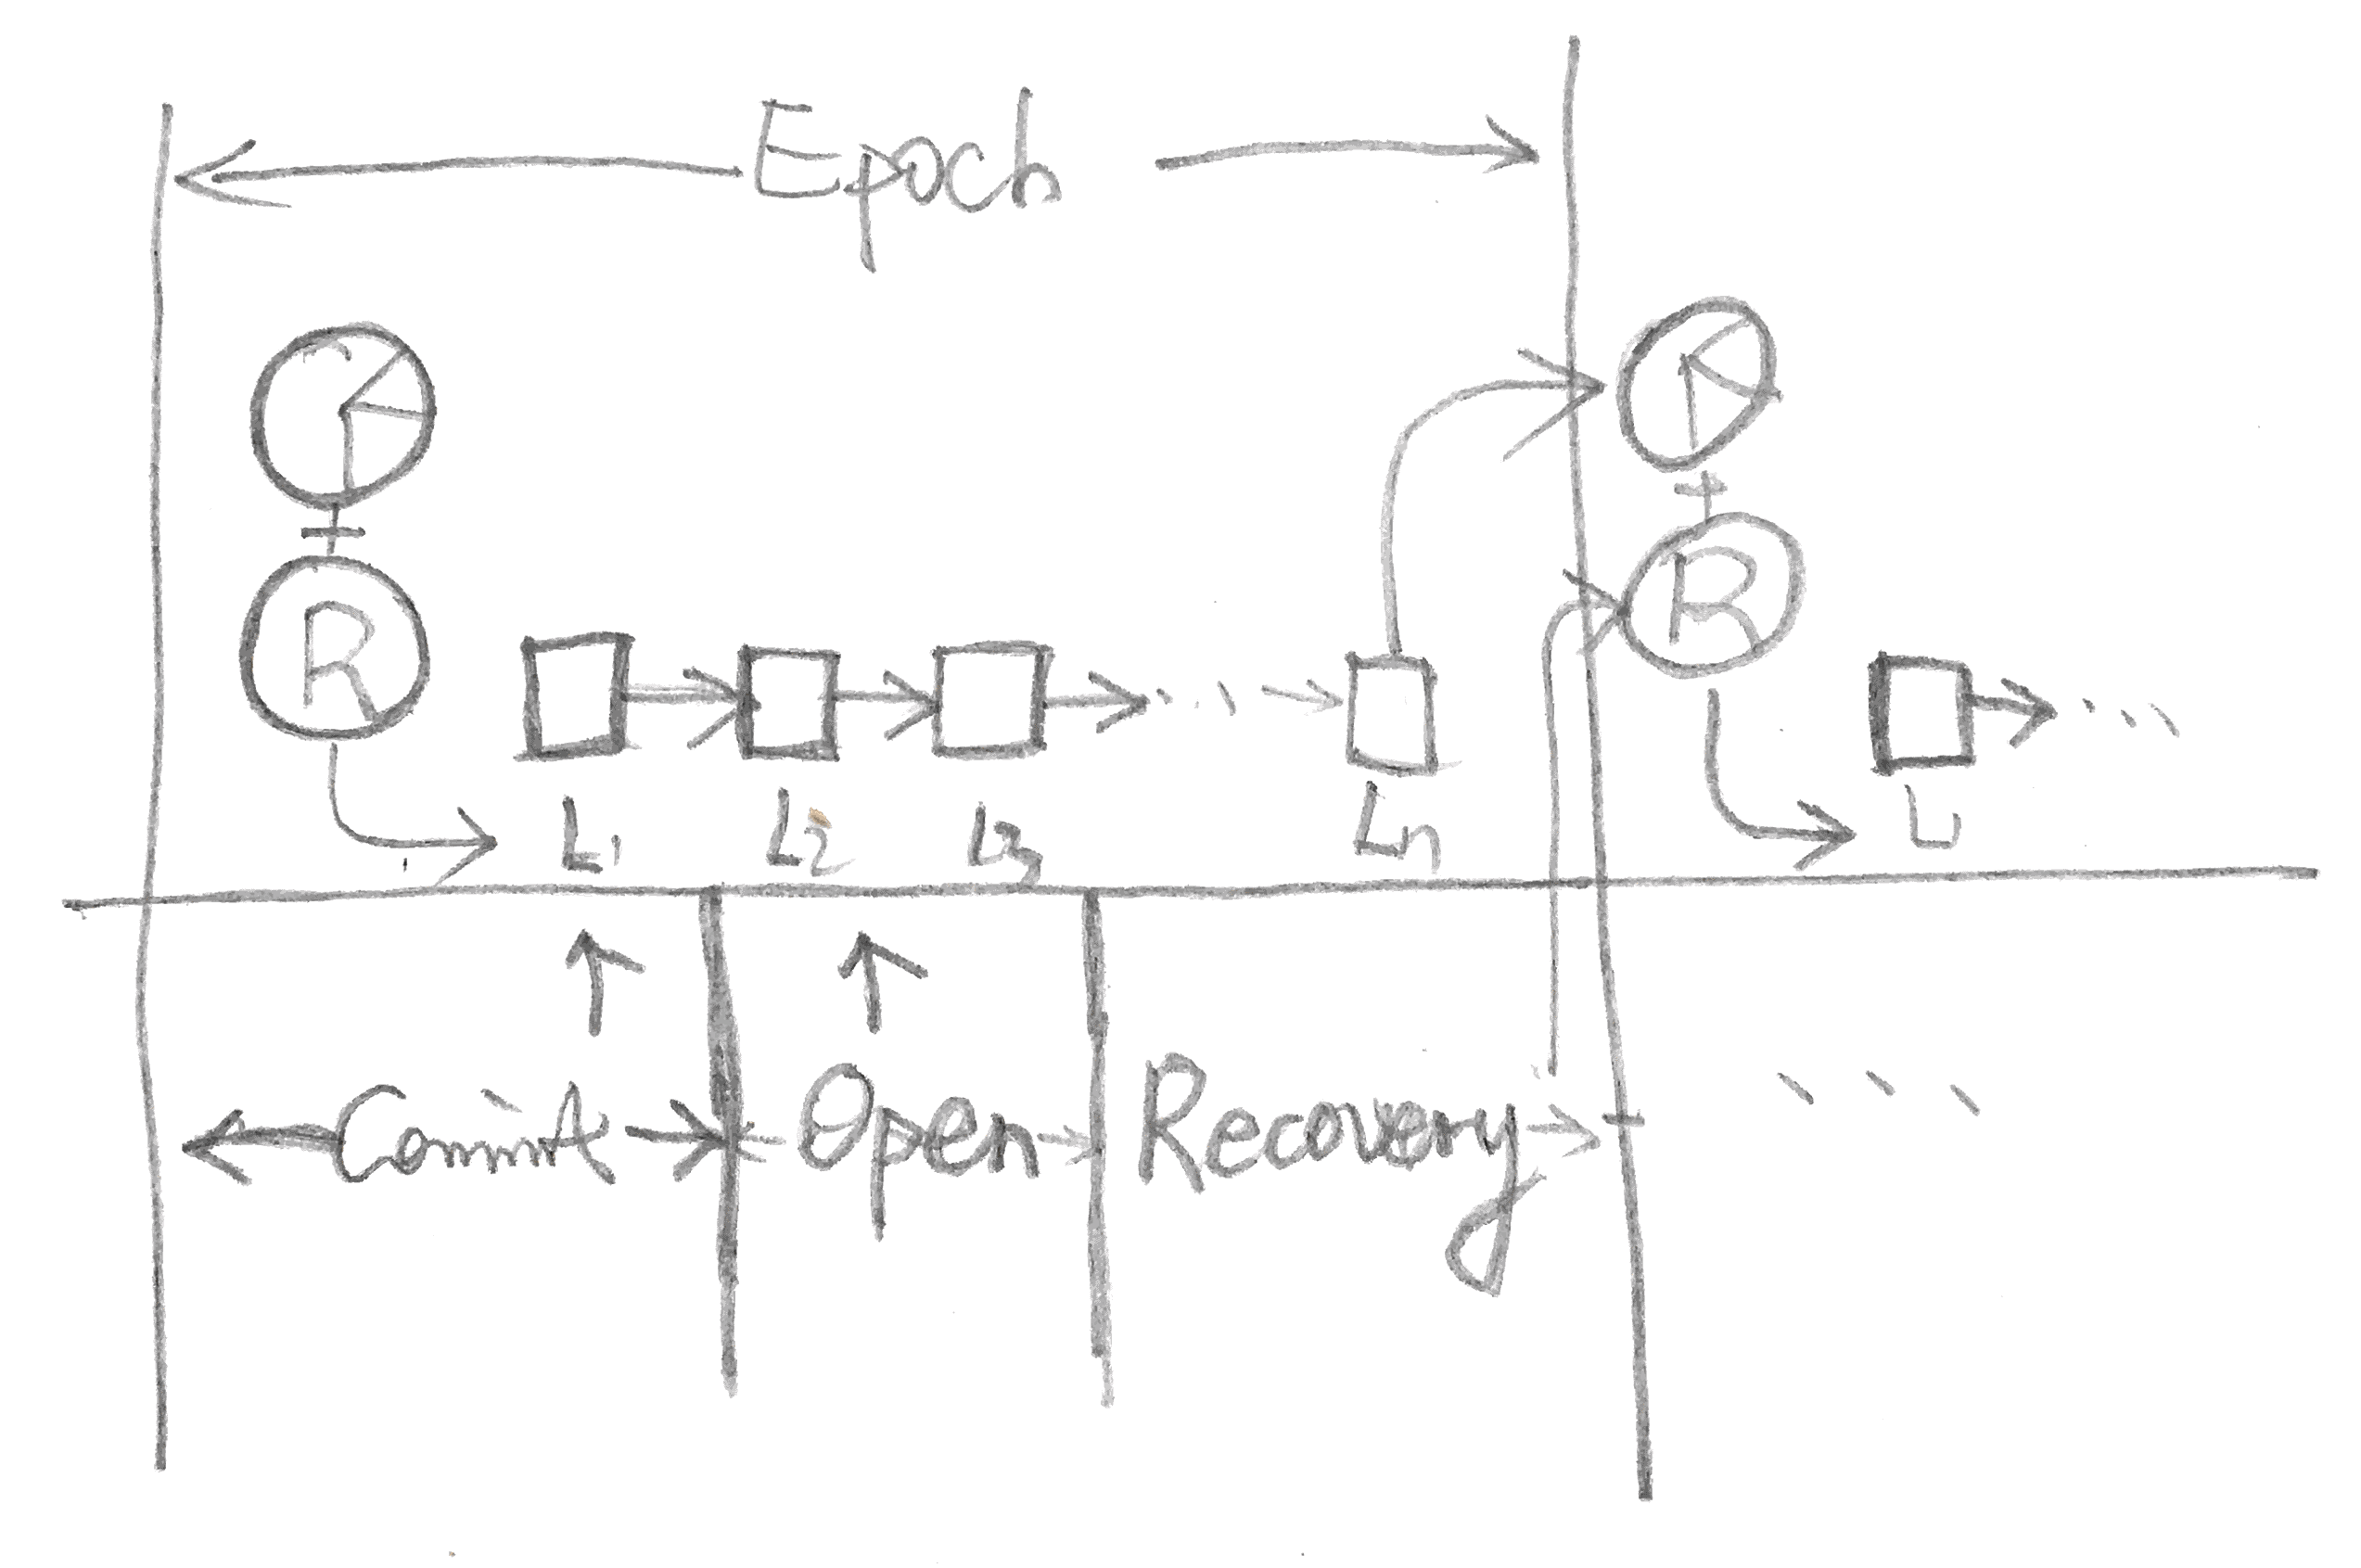 Epoch
R
R
L1 L2 L3 ... Ln
Commit Open Recovery ...